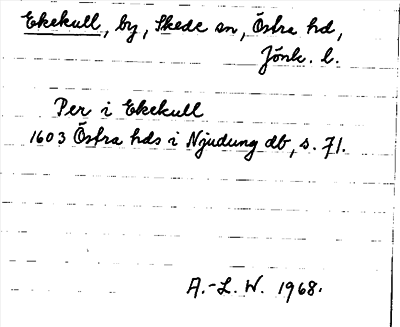 Ekekull, by, Skede sn, Östra hd,
Jönk. l.
Per i Ekekull
1603 Östra hds i Njudung db, s. 71.
A.-L. W. 1968.